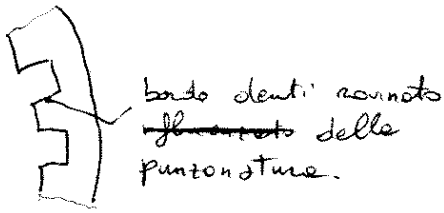 bordo denti rovinato
delle
punzonatura.